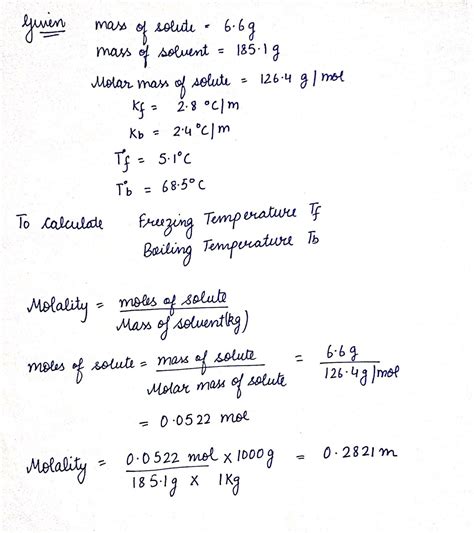 Given mass of solute = 6.6g
mass of solvent = 185.1g
Molar mass of solute = 126.4 g/mol
Kf = 2.8 °C/m
Kb = 2.4°C/m
T°f = 5.1°C
T°b = 68.5°C
To calculate Freezing Temperature Tf
Boiling Temperature Tb
Molality = moles of solute
Mass of solvent(kg)
moles of solute = mass of solute = 6.6g
Molar mass of solute 126.4g/mol
= 0.0522 mol
Molality = 0.0522 mol x 1000g = 0.2821m
185.1g x 1Kg